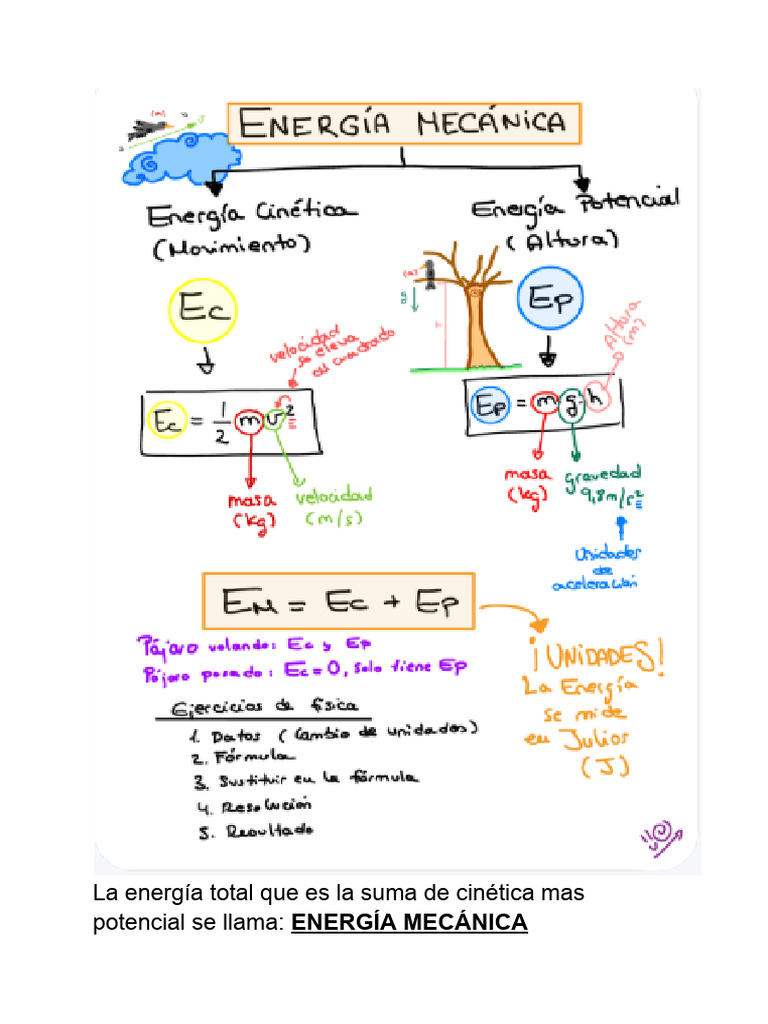 (m)
v
ENERGÍA MECÁNICA
Energía Cinética
(Movimiento)
Energía Potencial
(Altura)
Ec
velocidad
se eleva
al cuadrado
Ec = 1/2 m v²
masa
(kg)
velocidad
(m/s)
(m)
g
Ep
Altura
(m)
Ep = m g · h
masa
(kg)
gravedad
9,8 m/s²
Unidades
de
aceleración
EM = Ec + Ep
Pájaro volando: Ec y Ep
Pájaro posado: Ec = 0, solo tiene Ep
¡UNIDADES!
La Energía
se mide
en Julios
(J)
Ejercicios de física
1. Datos (Cambio de unidades)
2. Fórmula
3. Sustituir en la fórmula
4. Resolución
5. Resultado
La energía total que es la suma de cinética mas
potencial se llama: ENERGÍA MECÁNICA